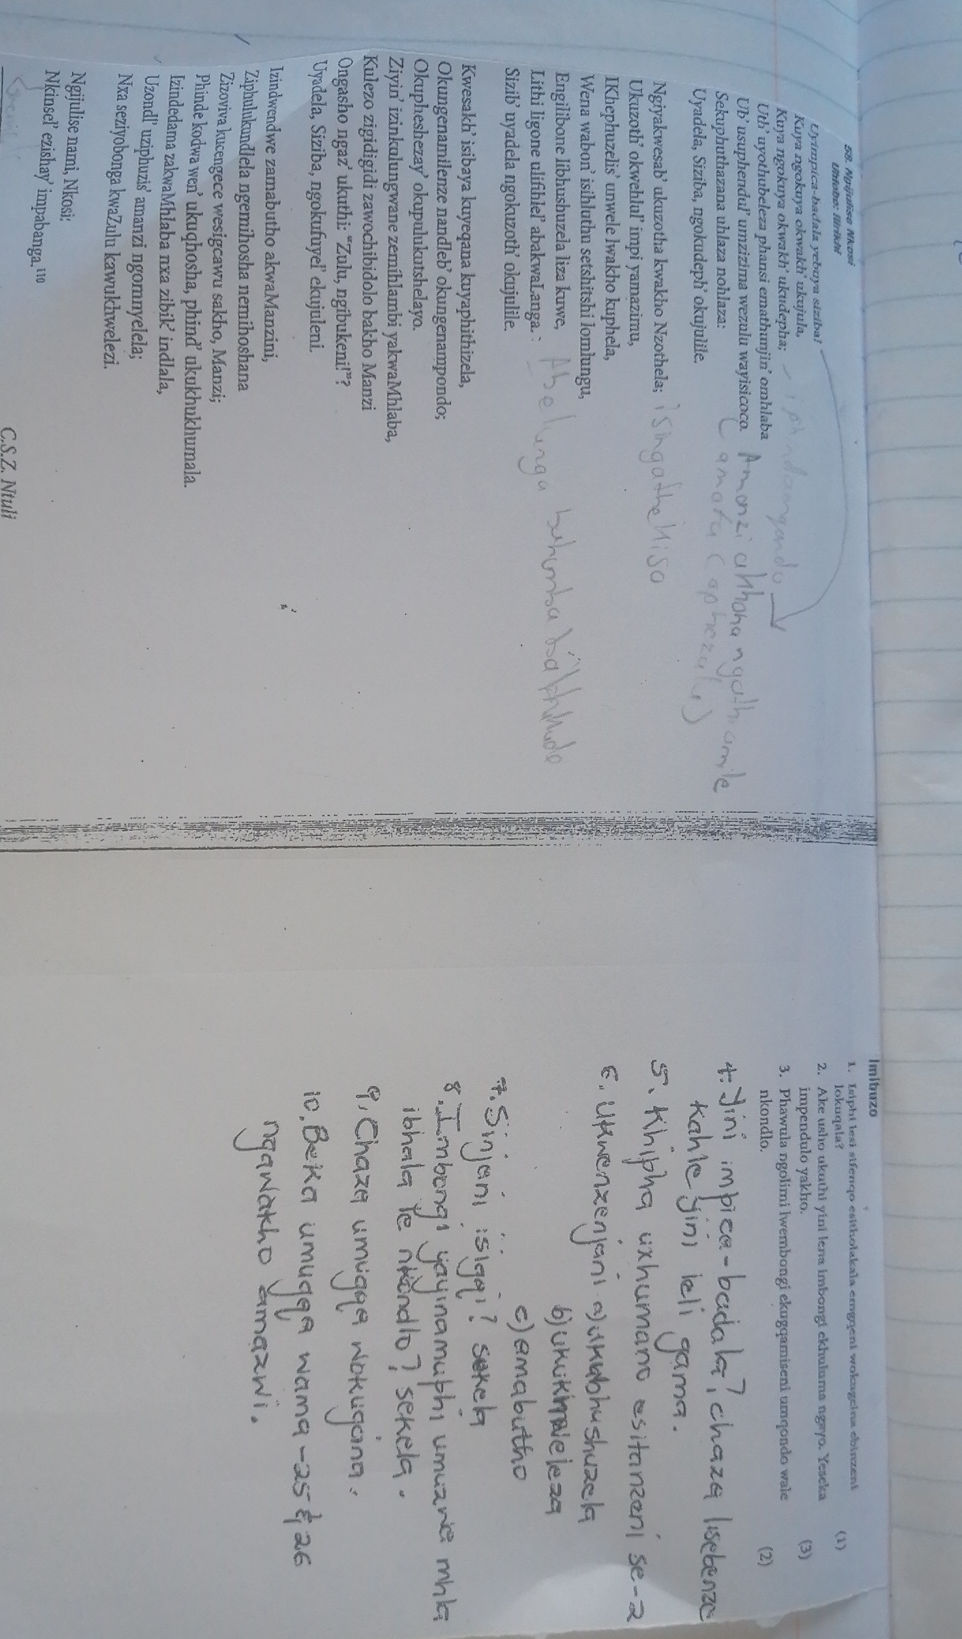 58. Ngijulise Nkosi
Uhlobo:
Uyimpica-badala yebuya siziba!
Kuya ngokuya okwakh' ukujula,
Kuya ngokuya okwakh' ukudepha;
Utb' uyothubeleza phansi emathunjin' omhlaba
Ub' usuphendul' umzizima wezulu wayisicoco.
Sekuphuthazana uhlaza nohlaza:
Uyadela, Siziba, ngokudeph' okujulile.
Amanzi akhona ngathi amile
Ngiyakwesab' ukuzotha kwakho Nzothela;
isingathekiso
Ukuzoth' okwehlul' impi yamazimu,
IKhephuzelis' unwele lwakho kuphela,
Wena wabon' isihluthu setshitshi lomlungu,
Engilibone libhushuzela liza kuwe,
Lithi ligone ulifihlel' abakwaLanga.
Abelungu
Sizib' uyadela ngokuzoth' okujulile.
Kwesakh' isibaya kuyeqana kuyaphithizela,
Okungenamilenze nandleb' okungenampondo;
Okupheshezay' okupulukutshelayo.
Ziyin' izinkulungwane zemihlambi yakwaMhlaba,
Kulezo zigidigidi zawochibidolo bakho Manzi
Ongasho ngaz' ukuthi: "Zulu, ngibukeni!"?
Uyadela, Siziba, ngokufuyel' ekujuleni.
Izindwendwe zamabutho akwaManzini,
Ziphulukundlela ngemihosha nemihoshana
Zizoviva kucengece wesigcawu sakho, Manzi;
Phinde kodwa wen' ukuqhosha, phind' ukukhukhumala.
Izindedama zakwaMhlaba nxa zibik' indlala,
Uzondl' uziphuzis' amanzi ngomnyelela;
Nxa seziyobonga kwaZulu kawukhwelezi.
Ngijulise nami, Nkosi:
Nkinsel' ezishay' impabanga.
C.S.Z. Ntuli
Imibuzo
1. Isiphi lesi sifenqo esitholakala emgqeni wokugcina ebinzeni
lokuqala? (1)
2. Ake usho ukuthi yini lena imbongi ekhuluma ngayo. Yeseka
impendulo yakho. (3)
3. Phawula ngolimi lwembongi ekugqamiseni umqondo wale
nkondlo. (2)
4. Yini impica-badala? chaza lisebenze
kahle yini leli gama.
5. Khipha uxhumano esitanzeni se-2
6. Ukwenzenjani a) ukubhushuzela
b) ukukhweleza
c) amabutho
7. Sinjani isigqi? sekela
8. Imbongi yayinamuphi umuzwa mhla
ibhala le nkondlo? sekela.
9. Chaza umugqa wokugcina.
10. Beka umugqa wama-25 & 26
ngawakho amazwi.